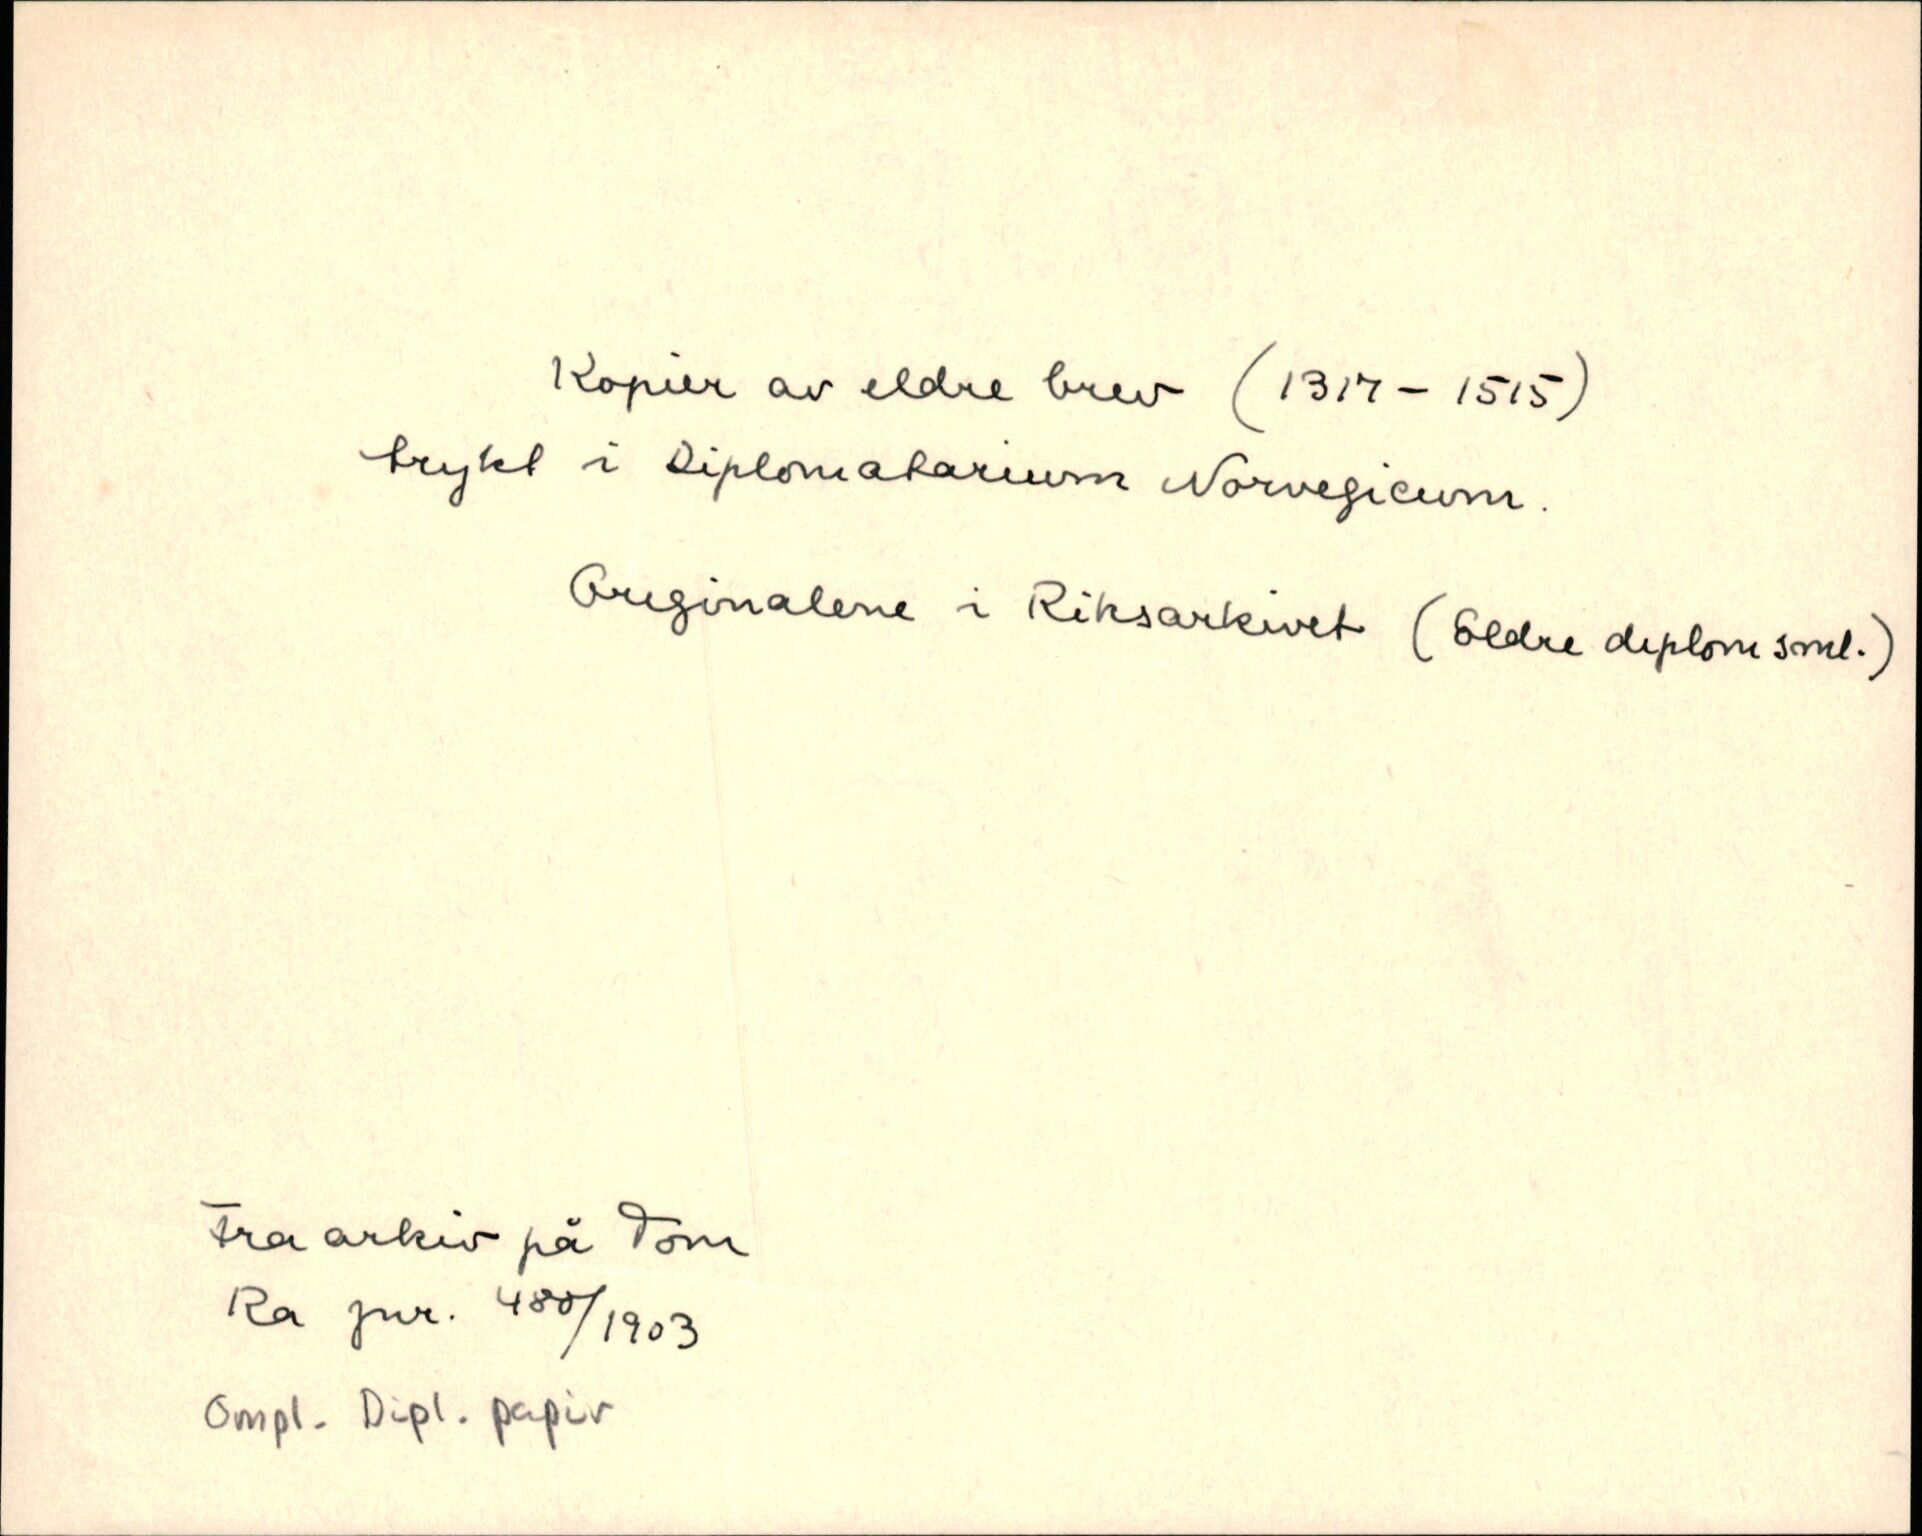 Kopier av eldre brev (1317 - 1515)
trykt i Diplomatarium Norvegicum.
Originalene i Riksarkivet (Eldre diplomsml.)
Fra arkiv på Tom
Ra jnr. 480/1903
Ompl. Dipl. papir